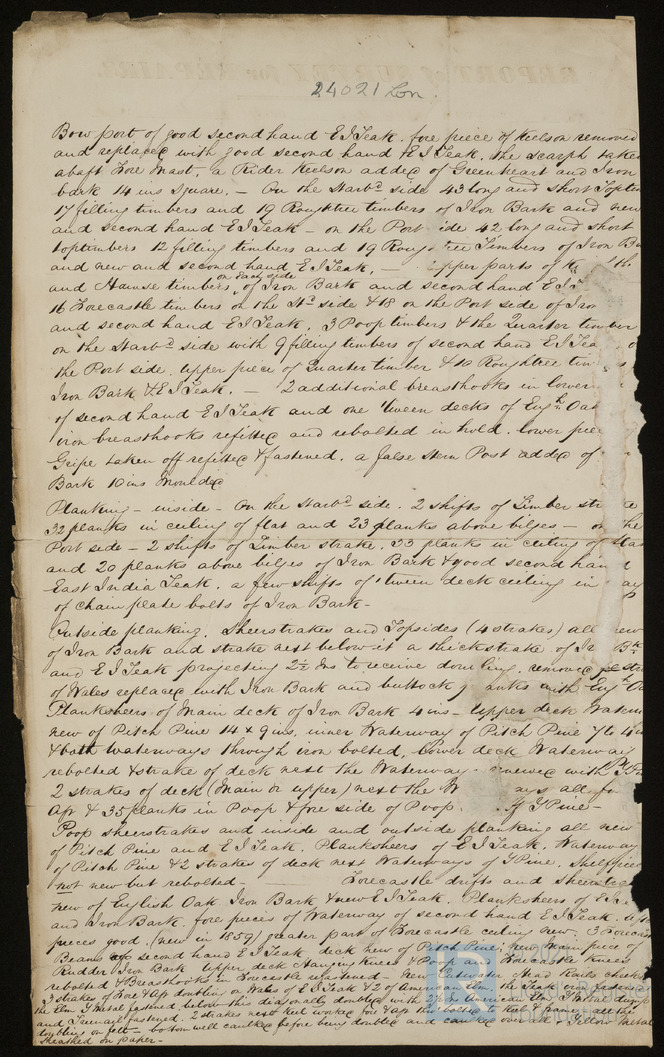 24021 Lon.
Bow port of good second hand E I Teak. fore piece of Keelson removed
and replaced with good second hand E I Teak. the scarph taken
abaft Fore Mast, a Rider Keelson added of Greenheart and Iron
bark 14 ins Square. - On the Starbd side 43 long and short Toptim
17 filling timbers and 19 Roughtree timbers of Iron Bark and new
and second hand E I Teak - on the Port ide 42 long and short
toptimbers 12 filling timbers and 19 Roug tree Timbers of Iron Ba
and new and second hand E I Teak. - pper parts of
on each side
and Hawse timbers, of Iron Bark and second hand E I
16 Forecastle timbers on the Std side & 18 on the Port side of Iron
and second hand E I Teak. 3 Poop timbers & the Quarter timber
on the Starbd side with 9 filling timbers of second hand E I Tea
the Port side. upper piece of Quarter timber & 10 Roughtree tim
Iron Bark & E I Teak. 2 additional breasthooks in lower
of second hand E I Teak and one 'tween decks of Engh Oak
iron breasthooks refitted and rebolted in hold. lower pie
Gripe taken off refitted & fastened. a false Stern Post added of
Bark 10 ins moulded
Planking - inside - On the Starbd side. 2 shifts of Limber stra
32 planks in ceiling of flat and 23 planks above bilges - on the
Port side - 2 shifts of Limber strake. 33 planks in ceiling of flat
and 20 planks above bilges of Iron Bark & good second hand
East India Teak. a few shifts of 'tween deck ceiling in way
of chain plate bolts of Iron Bark -
Outside planking. Sheerstrakes and Topsides (4 strakes) all new
of Iron Bark and strake next below it a thickstrake of Iron Bk
and E I Teak projecting 2½ Ins to receive doubling. removed stra
of Wales replaced with Iron Bark and buttock anks with Engh O
Planksheers of Main deck of Iron Bark 4 ins - Upper deck Waterw
new of Pitch Pine 14 x 9 ins, inner Waterway of Pitch Pine 7 to 4 in
& both waterways through iron bolted. Lower deck Waterway
rebolted & strake of deck next the Waterway enewed with Pt Pi
2 strakes of deck (Main or upper) next the W ays all fo
Aft & 35 planks in Poop & fore side of Poop Y Pine -
Poop sheerstrakes and inside and outside planking all new
of Pitch Pine and E I Teak. Planksheers of E I Teak. Waterway
of Pitch Pine & 2 strakes of deck next Waterways of Y Pine. Shelfpiece
not new but rebolted. - Forecastle drifts and sheerstra
new of English Oak Iron Bark & new E I Teak. Planksheers of E I Tea
and Iron Bark. fore pieces of Waterway of second hand E I Teak.
pieces good. (new in 1859) greater part of Forecastle ceiling new. 3 Forecas
Beams of second hand E I Teak. deck new of Pitch Pine. new main piece of
Rudder Iron Bark Upper deck Hanging Knees & Poop and Forecastle Knees
rebolted & Breasthooks in Forecastle refastened - New Cutwater Head Rails Cheeks
3 strakes of Fore & Aft doubling on Wales of E I Teak & 2 of American Elm. the Teak iron fastened
the Elm Y Metal fastened, below this diagonally doubled with 2½ ins American Elm Y Metal
and Treenail fastened. 2 strakes next keel worked fore & aft
doubling on felt - bottom well caulked before being doubled and caulked over all - Yellow Metal
sheathed on paper -